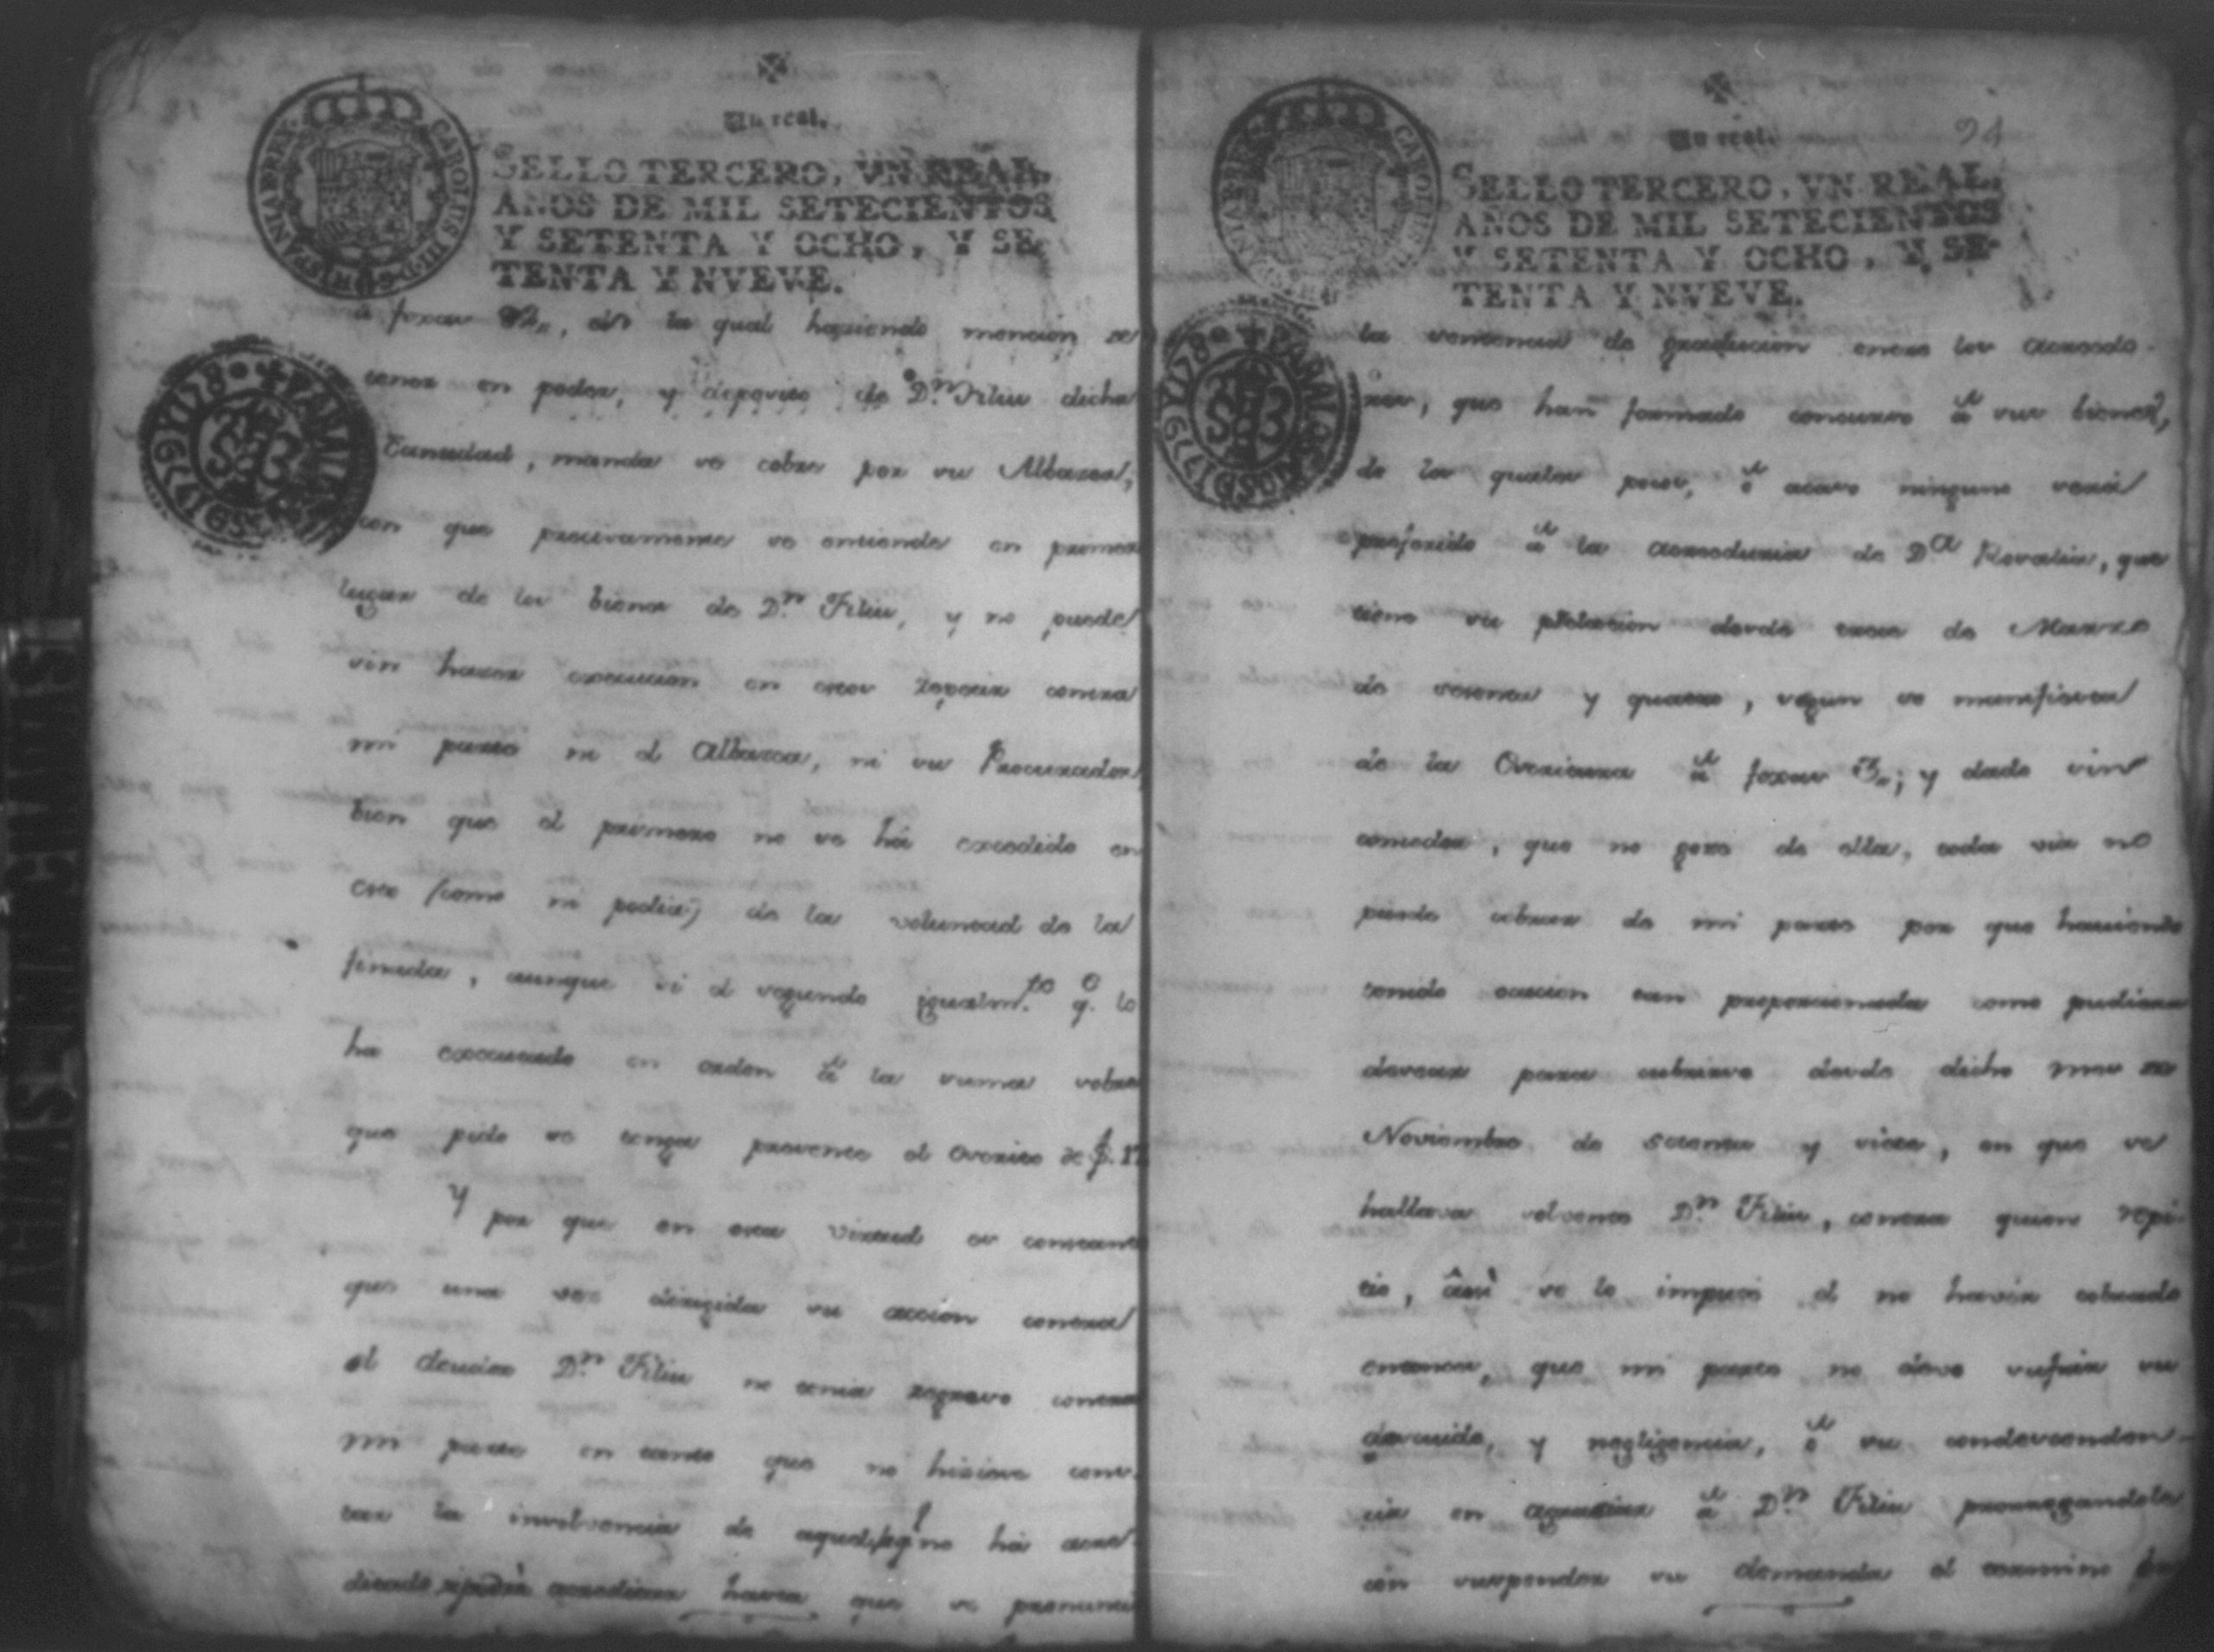 Un real.
SELLO TERCERO, VN REAL,
AÑOS DE MIL SETECIENTOS
Y SETENTA Y OCHO, Y SE-
TENTA Y NVEVE.
CAROLUS III D G HISPANIAR REX
à foxas, en la qual haziendo mencion se
tener en poder, y deposito de Dn. Feliu dicha
Cantidad, manda se cobre por su Albacea,
con que precisamente se entiende en primer
lugar de los bienes de Dn. Feliu, y no puede
sin hacer execucion en esos repetir contra
mi parte ni el Albacea, ni su Procurador,
bien que el primero no se há excedido en
esto (como ni podia) de la voluntad de la
finada, aunque si el segundo igualmte. q. lo
ha executado en orden â la suma sobre
que pido se tenga presente el escrito de f. 17
Y por que en esta virtud es constante
que una vez dirigida su accion contra
el deudor Dn. Feliu no tenia regreso contra
mi parte en tanto que no hiziese cons-
tar la insolvencia de aquel, q no há acre-
ditado, acreditar hasta que se pronuncie
Un real.
94
SELLO TERCERO, VN REAL,
AÑOS DE MIL SETECIENTOS
Y SETENTA Y OCHO, Y SE-
TENTA Y NVEVE.
la sentencia de graduacion entre los acreedo-
res, que han formado concurso â sus bienes,
de los quales pocos, ô acaso ninguno será
preferido â la acreeduria de Da. Rosalia, que
tiene su prelacion desde trece de Marzo
de setenta y quatro, segun se manifiesta
de la Escritura â foxas 3; y dado sin
conceder, que no goze de ella, toda via no
puede cobrar de mi parte por que haviendo
tenido ocasion tan proporcionada como pudiera
desear para cubrirse desde dicho mes de
Noviembre de setenta y siete, en que se
hallava solvente Dn. Feliu, contra quien repi-
tio, âsi se le impute el no haver cobrado
entonces, que mi parte no deve sufrir su
descuido, y negligencia, ô su condescenden-
cia en aguardar â Dn. Feliu prorrogandole
con suspender su demanda el termino